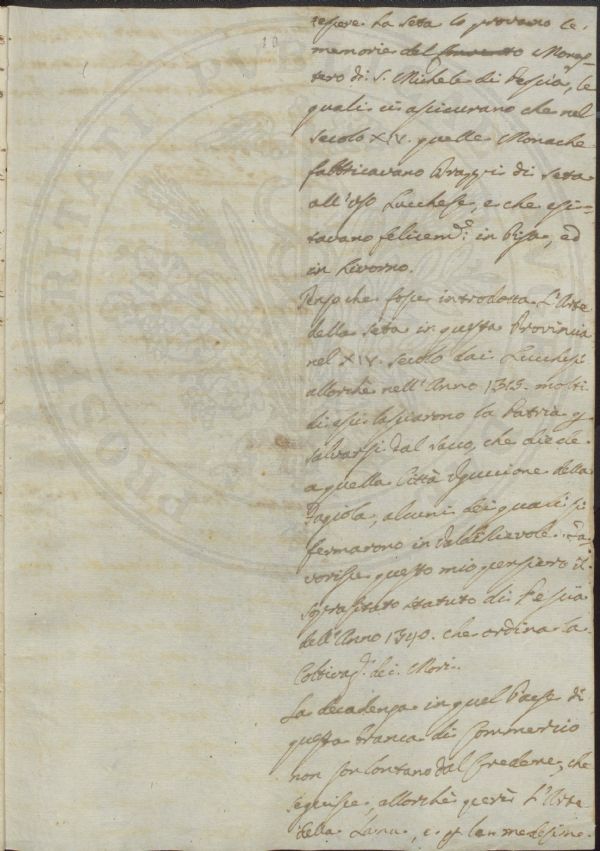 tessere la seta lo provano le
memorie del Mona-
stero di S. Michele di Pescia, le
quali ci assicurano che nel
secolo XIV. quelle Monache
fabbricavano Drappi di seta
all'uso Lucchese, e che esi-
tavano felicem.e in Pisa, ed
in Livorno.
Penso che fosse introdotta l'Arte
della seta in questa Provincia
nel XIV. secolo dai Lucchesi
allorchè nell'Anno 1313. molti
di essi lasciarono la Patria p
salvarsi dal sacco, che diede
a quella Città Uguccione della
Fagiola, alcuni dei quali si
fermarono in Valdinievole. Fa
vorisce questo mio pensiero il
sopracitato statuto di Pescia
dell'Anno 1340. che ordina la
Coltivaz.e de i Mori.
La decadenza in quel Paese di
questa branca di Commercio
non son lontano dal credere, che
seguisse, allorchè perì l'Arte
della Lana, e p la medesima
PROSPERITATI PUBLICAE